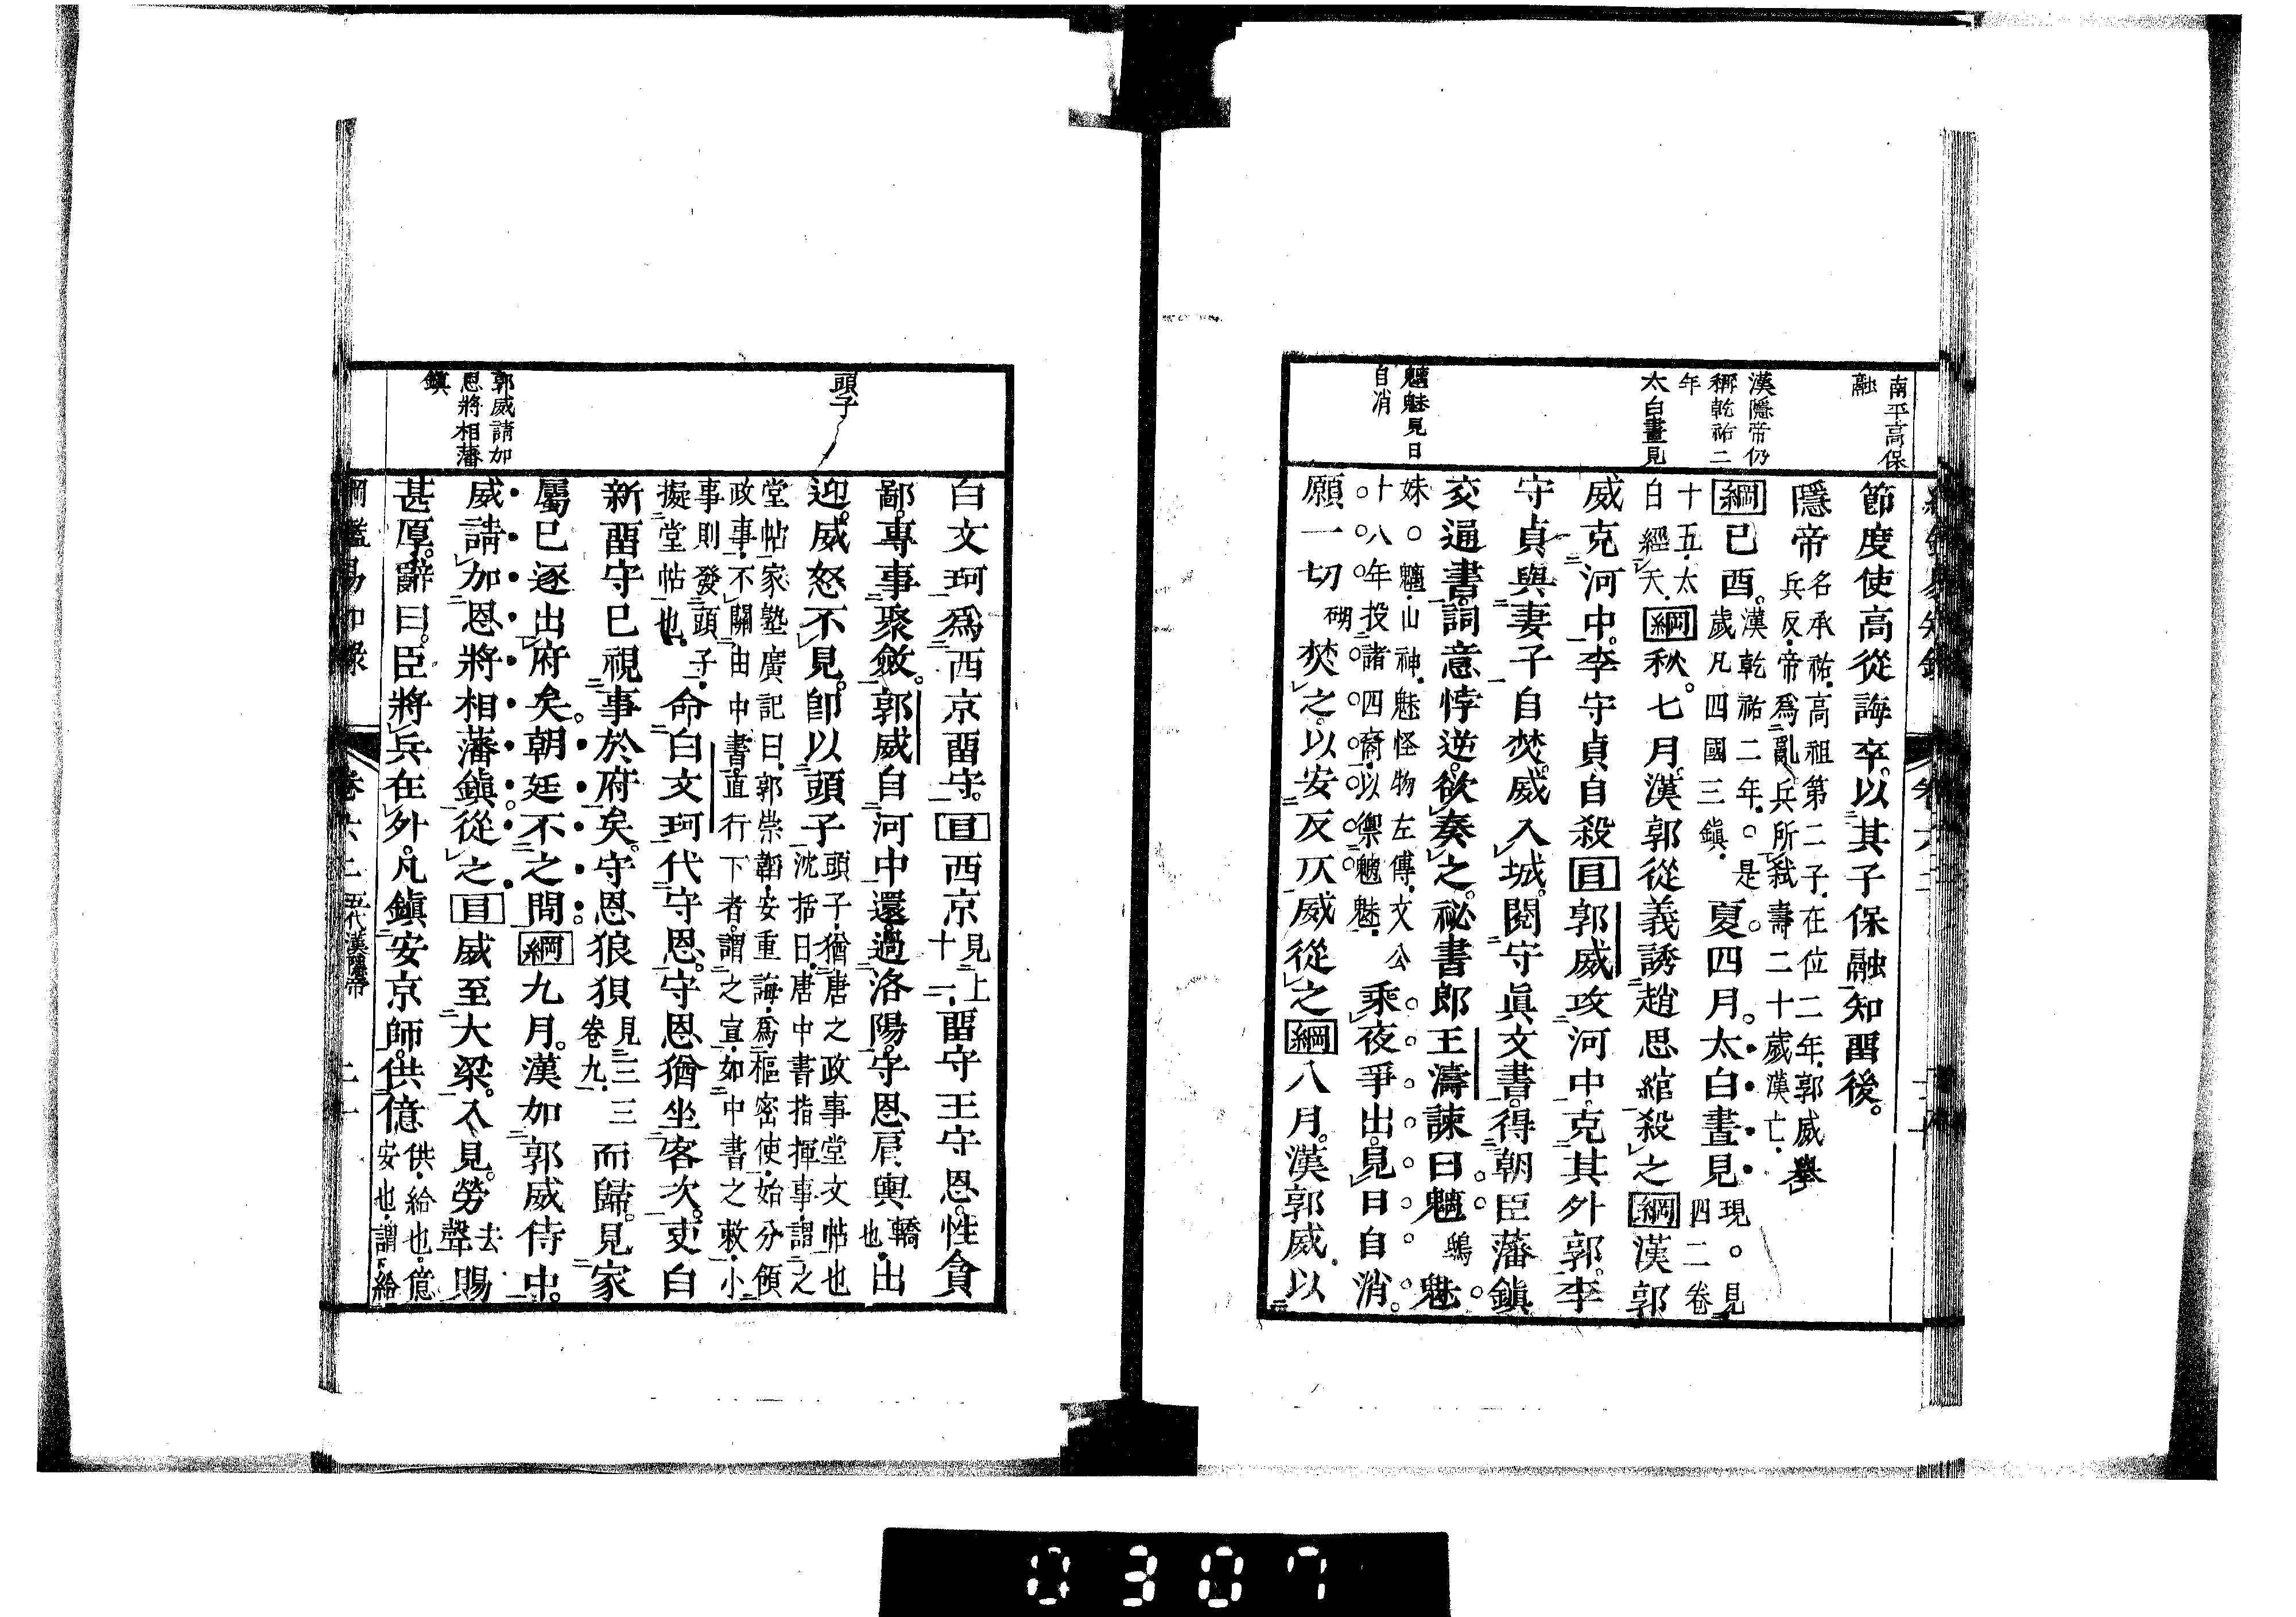 南平高保
融
漢隱帝仍
稱乾祐二
年
太白晝見
魑魅見日
自消
節度使高從誨卒。以其子保融知畱後。
隱帝名承祐.高祖第二子.在位二年.郭威舉
兵反.帝爲亂兵所弒壽二十歲漢亡.
綱己酉。漢乾祐二年.○是
歲凡四國三鎮.
夏四月。太白晝見現○見
四二卷
十五.太
白經天.
綱秋。七月。漢郭從義誘趙思綰殺之綱漢郭
威克河中。李守貞自殺目郭威攻河中克其外郭。李
守貞與妻子自焚。威入城。閱守眞文書。得朝臣藩鎮
交通書。詞意悖逆。欲奏之。祕書郎王濤諫曰魑鴟魅
妹○魑.山神.魅怪物左傳.文公
十八年投諸四裔.以禦魑魅.
乘夜爭出。見日自消。
願一切砌焚之。以安反仄威從之綱八月。漢郭威.以
頭子
郭威請加
恩將相藩
鎮
白文珂爲西京畱守。目西京見上
十一.畱守王守恩。性貪
鄙。專事聚斂。郭威自河中還。過洛陽。守恩肩輿轎
也.出
迎。威怒不見。卽以頭子頭子.猶唐之政事堂文帖也
沈括曰.唐中書指揮事.謂之
堂帖家塾廣記曰.郭崇韜.安重誨.爲樞密使.始分領
政事.不關由中書直行下者.謂之宣.如中書之敕.小
事則發頭子.
擬堂帖也.
命白文珂代守恩。守恩猶坐客次。吏白
新畱守已視事於府矣。守恩狼狽見三三
卷九.而歸。見家
屬已逐出府矣。朝廷不之問。綱九月。漢加郭威侍中。
威請加恩將相藩鎮。從之。目威至大梁。入見。勞去
聲賜
甚厚。辭曰。臣將兵在外。凡鎮安京師。供億供.給也.億
安也.謂給
綱鑑易知錄
卷六二
五代漢隱帝
二十